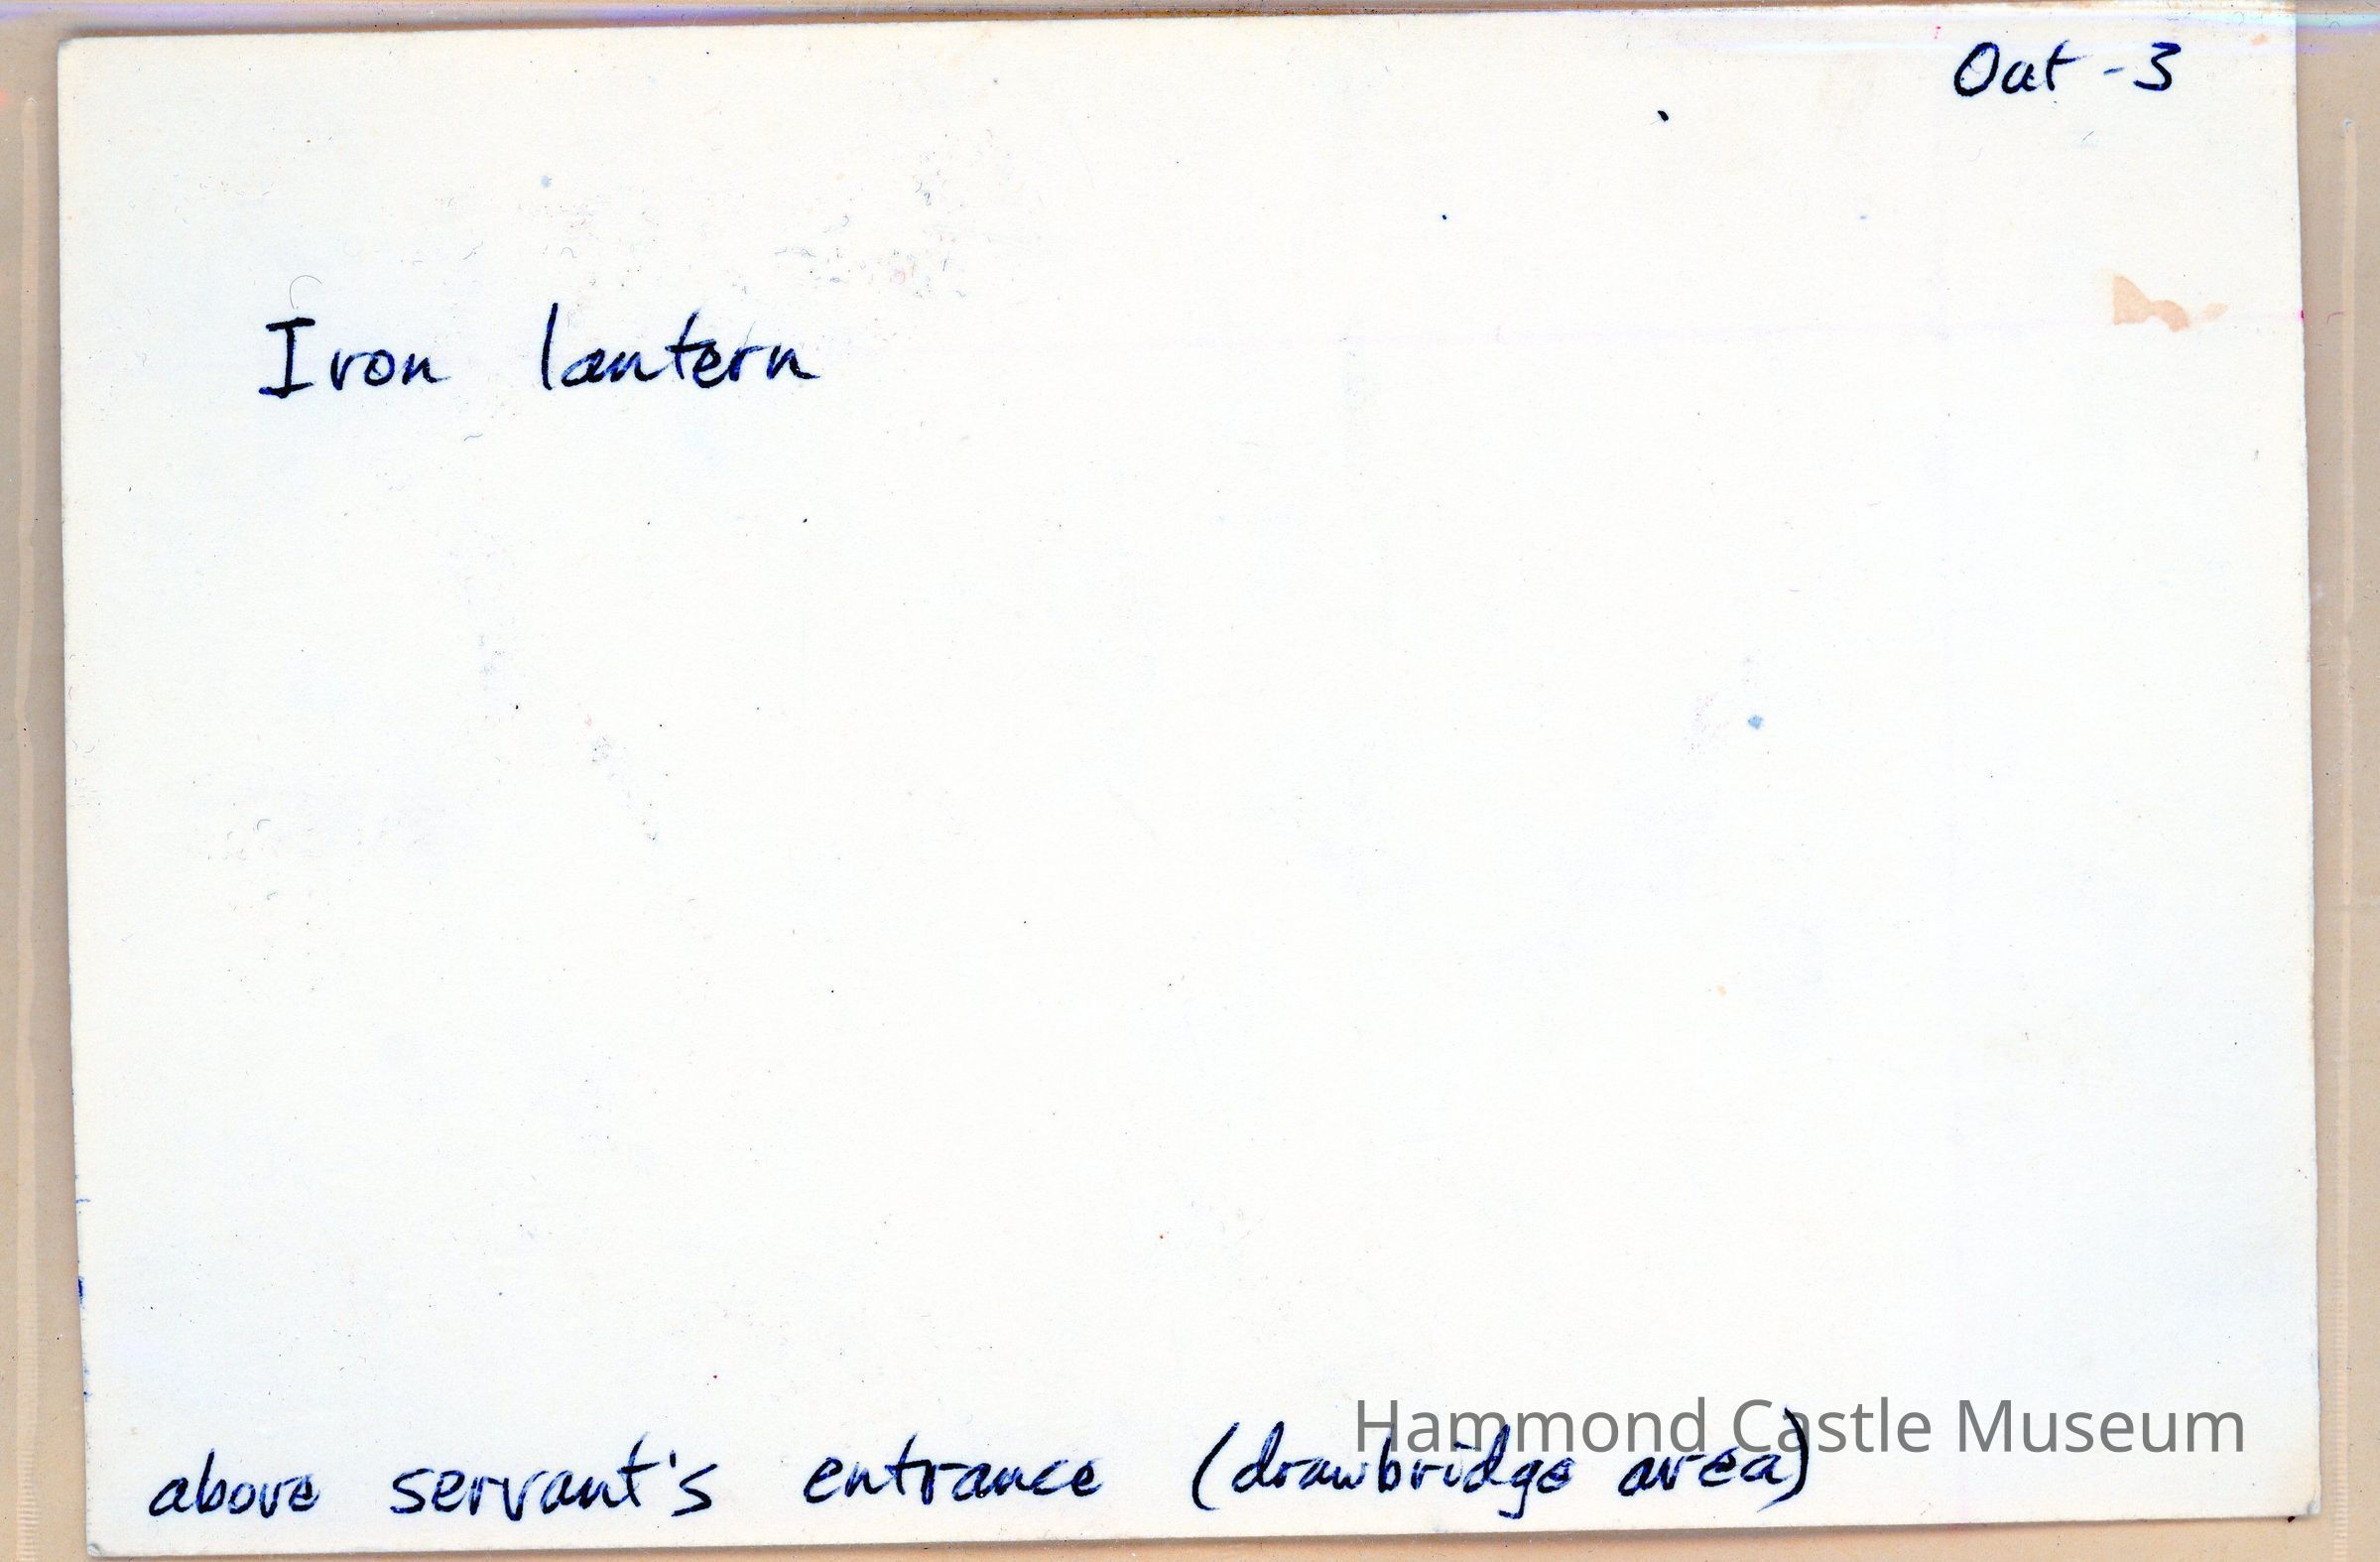 Out-3
Iron lantern
Hammond Castle Museum
above servant's entrance (drawbridge area)